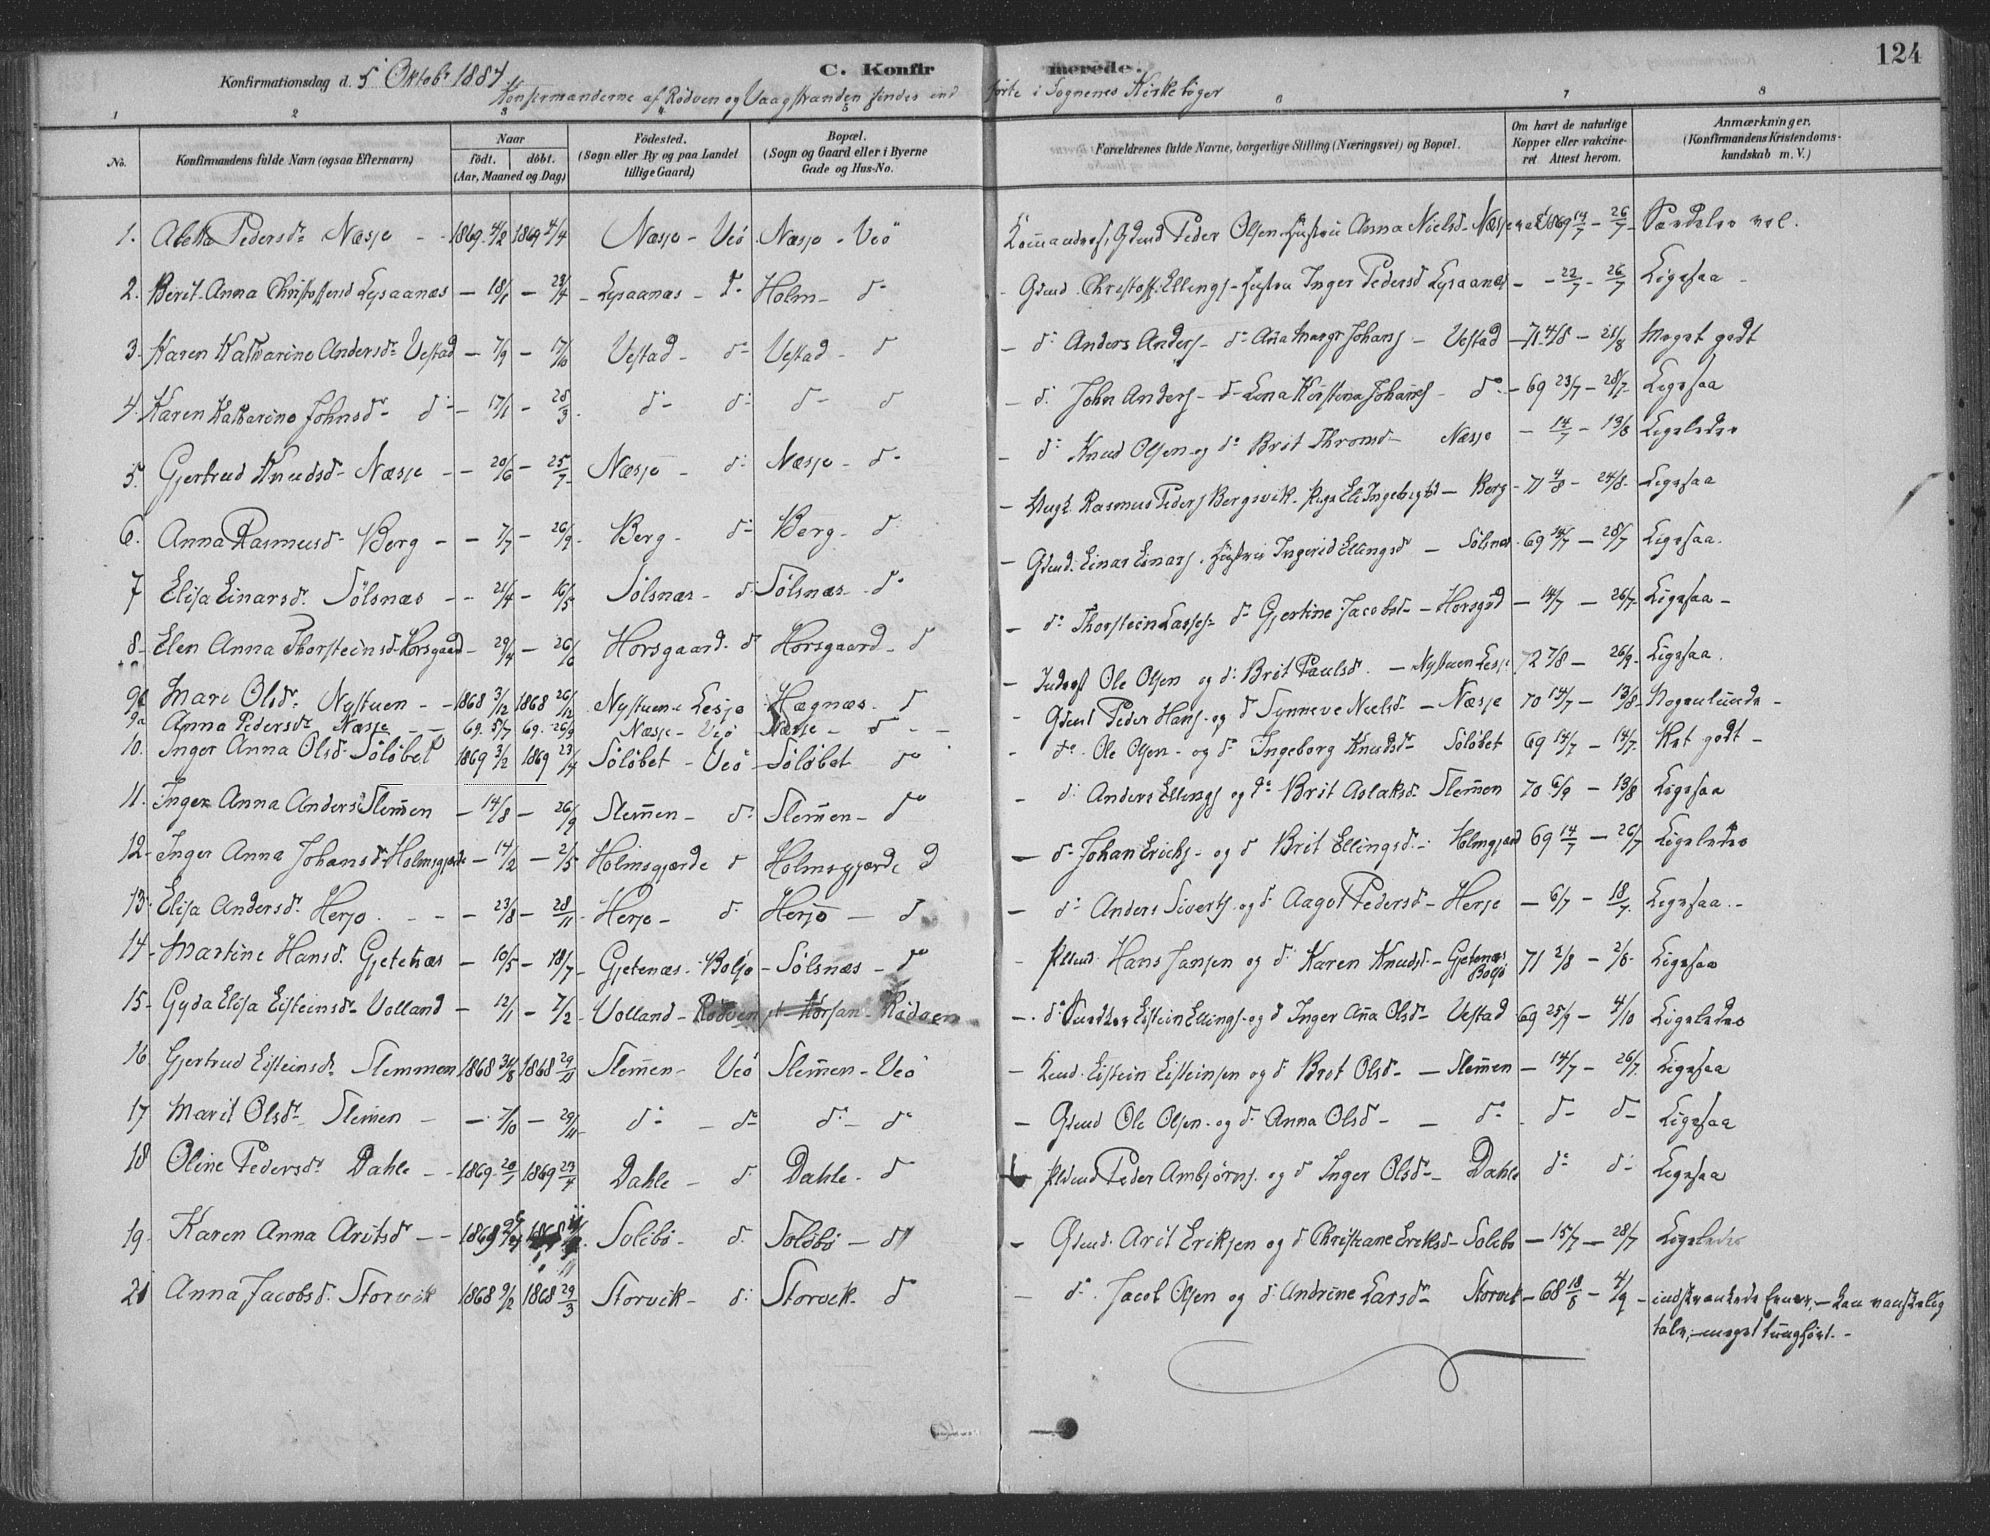 124
C. Konfirmerede.
Konfirmationsdag d. 5 Oktobr 1884
Konfirmanderne af Rødven og Vaagstranden findes indførte i Sognenes Kirkebøger
1 2 3 4 5 6 7 8
No. Konfirmandens fulde Navn (ogsaa Efternavn) Naar født. døbt. (Aar, Maaned og Dag) Fødested. (Sogn eller By og paa Landet tillige Gaard) Bopæl. (Sogn og Gaard eller i Byerne Gade og Hus-No. Forældrenes fulde Navne, borgerlige Stilling (Næringsvei) og Bopæl. Om havt de naturlige Kopper eller vakcineret. Attest herom. Anmærkninger. (Konfirmandens Kristendomskundskab m. V.)
1. Aletta Pedersdr Næsje - 1869 4/2 1869 4/4 Næsje - Veö Næsje - Veö Gdmd Peder Olsen Hustru Anna Nielsd. Næsje 1869 14/7 - 26/7 Særdeles vel.
2. Berit Anna Christoffersd Lysaanæs - 18/1 - 29/4 - Lysaanæs - do Holm - do Gdmd. Christoff. Ellings. Hustru Inger Pedersd Lysaanæs - 22/7 - 26/7 Ligesaa
3. Karen Katharine Andersdr Vestad - 7/9 - 17/10 Vestad - do Vestad - do - do Anders Anders. do Ana Margr Johans - Vestad - 71 4/8 - 21/8 Meget godt
4. Karen Katharine Johnsdr do - 17/1 - 28/3 do do do do - do John Anders - do Lena Kirstina Johans - do - 69 23/7 - 28/7 Ligesaa
5. Gjertrud Knudsd. Næsje - 20/6 - 25/7 Næsje - do Næsje - do - do Knud Olsen og do Brit Thronsd - Næsje - 14/7 - 13/8 Ligeledes
6. Anna Rasmusd. Berg - 7/7 - 26/9 Berg - do Berg - do - Rasmus Peders Bergsvik. Pige Eli Ingebrigtsd - Berg - 71 4/8 - 24/8 Ligesaa
7 Elisa Einarsdr. Sølsnæs - 21/4 - 16/5 Sølsnæs - do Sølsnæs - do - Gdmd. Einar Einars. Hustru Ingerid Ellingsdr - Sølsnæs 69 14/7 - 28/7 Ligesaa.
8 Elen Anna Thorsteinsd. Horsgaard - 29/4 - 26/6 Horsgaard - do Horsgaard - do - do Thorstein Lasses. do Gjertine Jacobsd. - Horsgrd - 14/7 - 26/7 Ligesaa -
9 Mari Olsdr. Nystuen - 1868 3/12 1868 26/12 Nystuen - Lesje Hægnæs - do - Inderst Ole Olsen og do Brit Paulsd. - Nystuen Lesje 72 7/8 - 26/9 Ligesaa.
9a Anna Pedersdr Næsje - 69 5/7 69. 26/9 Næsje - Veö Næsje - do - Gdmd Peder Hans. og do Synneve Nielsd. - Næsje 70 14/7 - 13/8 Nogenlunde -
10. Inger Anna Olsd. Sølöbet 1869 3/2 1869 23/4 Sölöbet - Veö Sölöbet do - do Ole Olsen - og do Ingeborg Knudsdr Sölöbet 69 14/7 - 14/7. Ret godt -
11. Inger Anna Anders. Slemmen - 14/8 - 26/9 Slemmen - do Slemmen - do - do Anders Ellings og do Brit Aslaksd. Slemmen 70 6/9 - 13/8 Ligesaa
12. Inger Anna Johansd. Holmsgjærde - 14/2 - 2/5 Holmsgjærde do Holmsgjærde do - do Johan Erichs. og do Brit Ellingsd. - Holmgjærd 69 14/7 - 26/7 Ligeledes
13. Elisa Andersdr. Herje. - 23/8 - 28/11 - Herje - do Herje - do - do Anders Siverts. og do Aagot Pedersd - Herje - 6/7 - 18/7. Ligesaa. -
14 - Martine Hansd. Gjetenæs - 10/5 - 18/7 Gjetenæs. Bolsø - Sølsnæs - do - Plmd. Hans Jansen og do Karen Knudsd. - Gjetenæs Bolsø 71 2/8 - 2/8. Ligesaa
15 - Gyda Elisa Eisteinsdr Volland - 12/1 - 7/2 Volland - Rødven Rødven - do Eistein Ellings. og do Inger Ana Olsd. Vestad 69 25/9 - 4/10 Ligeledes
16 Gjertrud Eisteinsdr. Slemmen 1868 31/8 1868 29/11 Slemmen - Veö Slemmen - Veö - Eistein Eisteinsen og do Brit Olsd. - Slemmen - 14/7 - 26/7. Ligesaa
17 Marit Olsdr Slemmen - 7/10 - 29/11 do do do do - Gdmd Ole Olsen - og do Anna Olsd - do - do do Ligesaa
18 Oline Pedersdr Dahle - 1869 20/1 1869 29/4 Dahle - do Dahle - do Plsmd Peder Ambjørns. og do Inger Olsdr - Dahle do do Ligesaa
19 - Karen Anna Aritsdr - 1869 Solöbö - do Solöbö - do - Gdmd. Arit Eriksen og do Christiane Eriksd - Solöbö - 15/7 - 28/7 Ligeledes
21 Anna Jacobsd. Storvik 1868 9/2 1868 29/3 Storvik - do Storvik - do - do. Jacob Olsen og do Andrine Larsdr - Storvik - 68 18/8 - 4/9 - indskrænkede Evner, - kan vanskelig tale, - meget tunghört. -